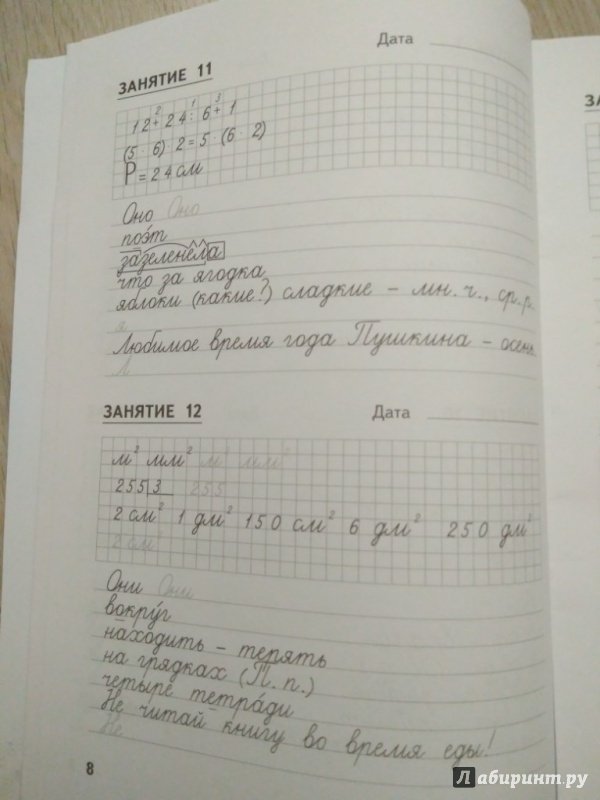 Дата
ЗАНЯТИЕ 11
12 + 24 : 6 + 1
2 1 3
(5 · 6) · 2 = 5 · (6 · 2)
P = 24 см
Оно Оно
поэ́т
зазеленела
что за ягодка
яблоки (какие?) сладкие – мн. ч., ср. р.
я
Любимое время года Пушкина – осень.
Л
ЗАНЯТИЕ 12 Дата
м² мм² м² мм²
255|3 255
2 см² 1 дм² 150 см² 6 дм² 250 дм²
2 см²
Они Они
вокру́г
находить – терять
на грядках (П. п.)
четыре тетра́ди
Не читай книгу во время еды!
Не
8
Лабиринт.ру